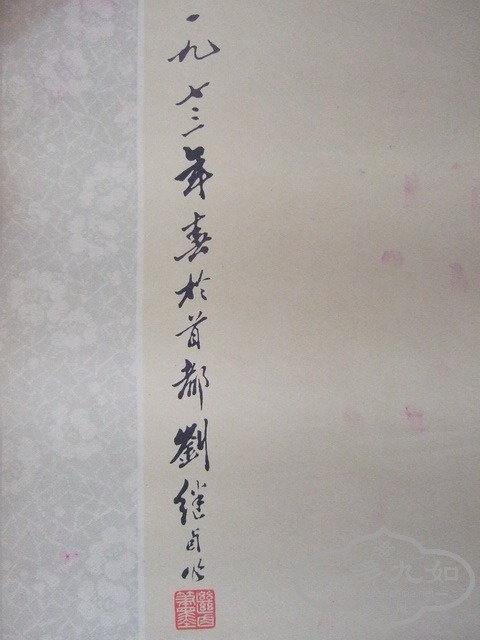 一九七三年春於首都劉继卣作
九如